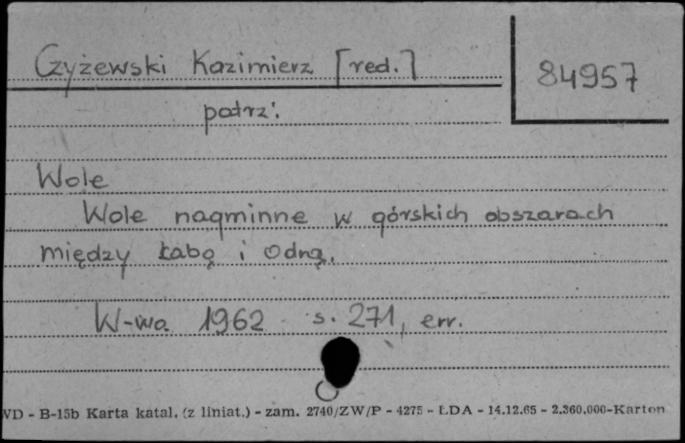 Czyżewski Kazimierz [red.]
84957
patrz:
Wole
Wole nagminne w górskich obszarach
między Łabą i Odrą.
W-wa 1962 s. 271, err.
WD - B-15b Karta katal. (z liniat.) - zam. 2740/ZW/P - 4275 - ŁDA - 14.12.65 - 2.360.000-Karton